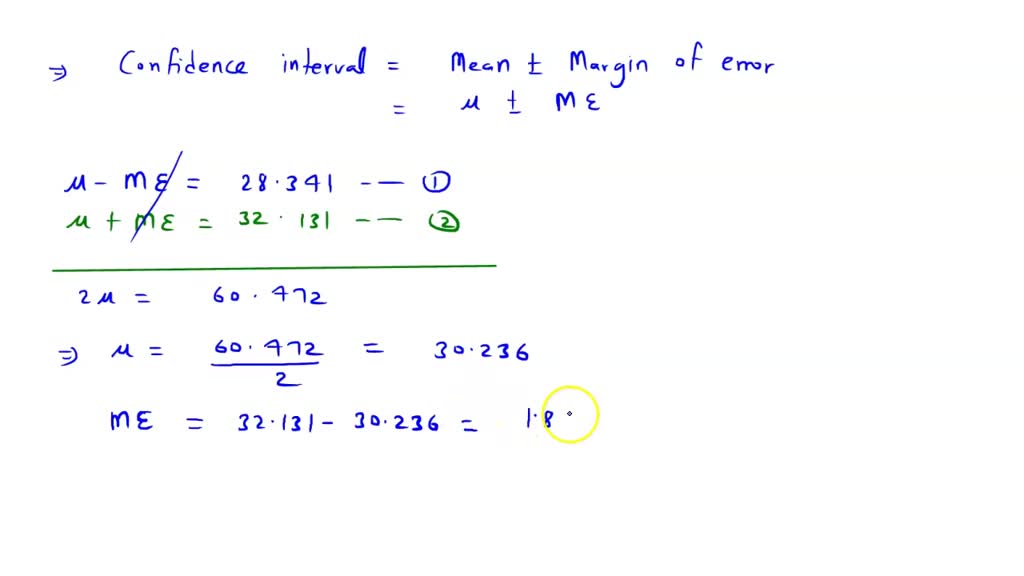 ⇒ Confidence interval = Mean ± Margin of error
= μ ± ME
μ - ME = 28.341 -- — ①
μ + ME = 32.131 -- — ②
2μ = 60.472
⇒ μ = 60.472 / 2 = 30.236
ME = 32.131 - 30.236 = 1.8